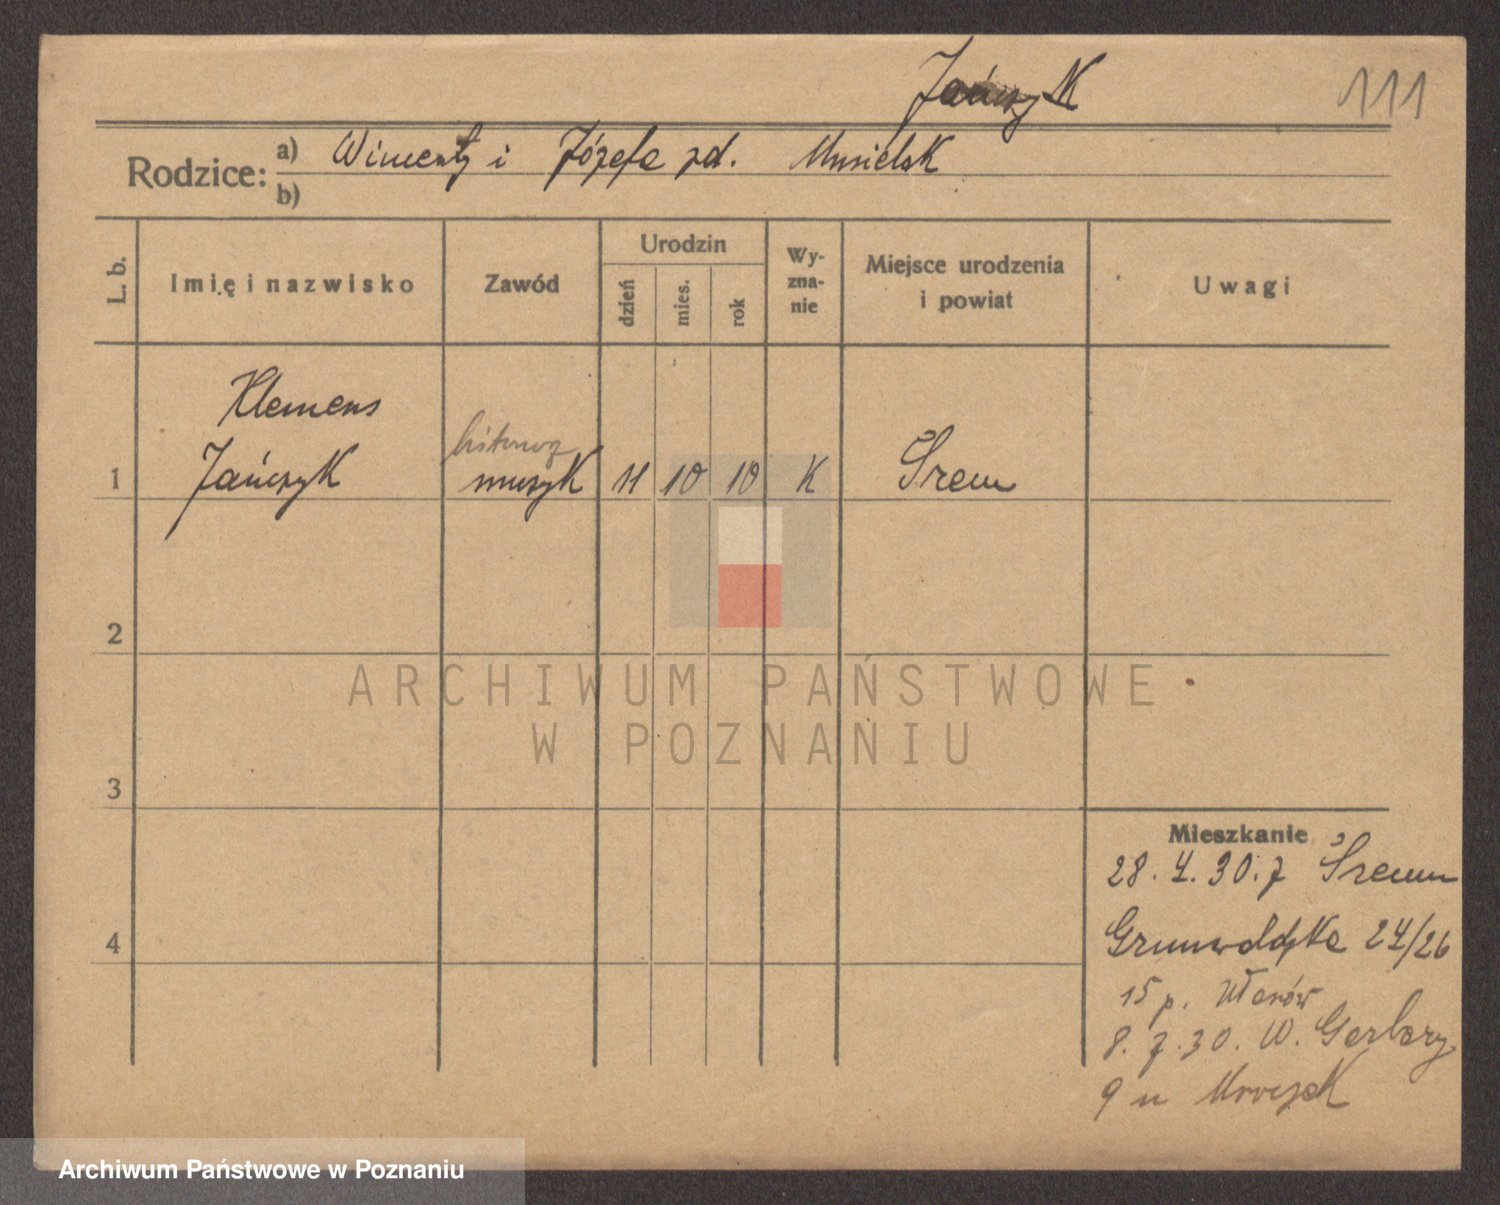 Jańczyk
111
Rodzice:
a) Wincenty i Józefa zd. Musielak
b)
L. b.
Imię i nazwisko
Zawód
Urodzin
dzień
mies.
rok
Wy-
zna-
nie
Miejsce urodzenia
i powiat
Uwagi
Klemens
1 Jańczyk muzyk 11 10 10 K Śrem
2
ARCHIWUM PAŃSTWOWE
W POZNANIU
3
Mieszkanie
28. 4. 30. z Śremu
Grunwaldzka 24/26
15 p.
8. 7. 30. W. Garbary
9 u Mroczek
4
Archiwum Państwowe w Poznaniu